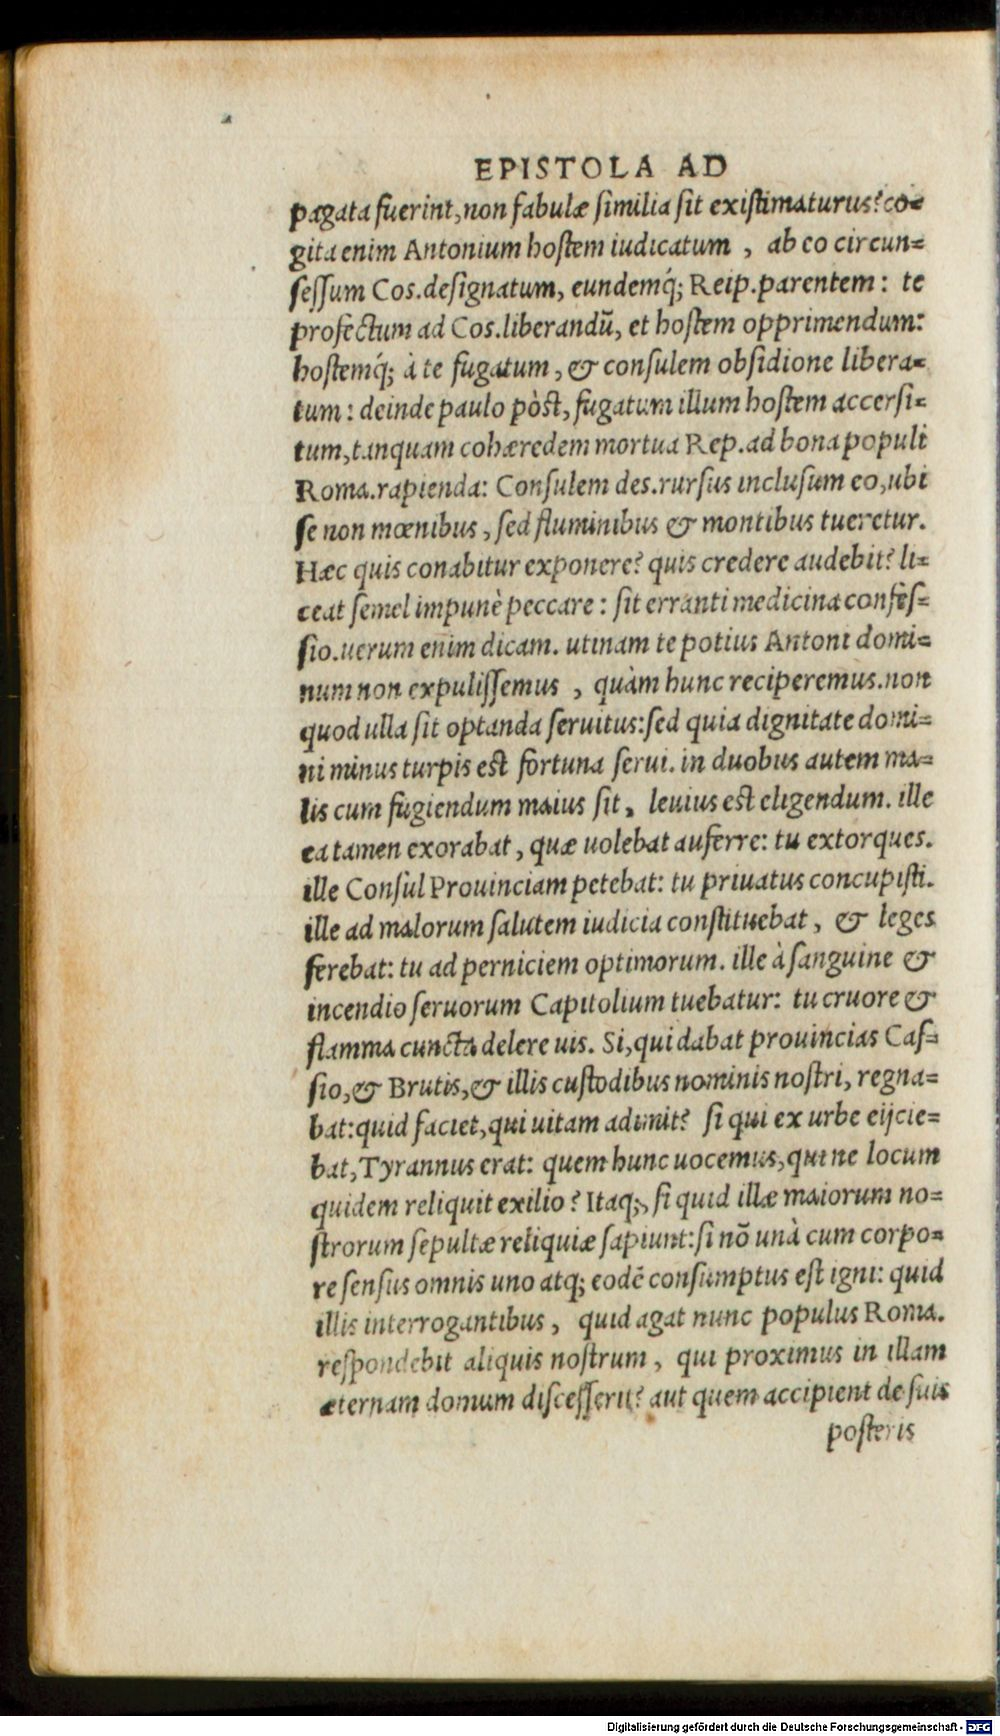 EPISTOLA AD
pagata fuerint, non fabulæ ſimilia ſit exiſtimaturus? co=
gita enim Antonium hoſtem iudicatum , ab eo circun=
ſeſſum Cos. deſignatum, eundemq́; Reip. parentem : te
profectum ad Cos. liberandū, et hoſtem opprimendum:
hoſtemq́; à te fugatum, & conſulem obſidione libera=
tum : deinde paulo pòſt, fugatum illum hoſtem accerſi=
tum, tanquam cohæredem mortua Rep. ad bona populi
Roma. rapienda: Conſulem des. rurſus incluſum eo, ubi
ſe non mœnibus, ſed fluminibus & montibus tueretur.
Hæc quis conabitur exponere? quis credere audebit? li=
ceat ſemel impunè peccare : ſit erranti medicina confeſ=
ſio. uerum enim dicam. utinam te potius Antoni domi=
num non expuliſſemus , quàm hunc reciperemus. non
quod ulla ſit optanda ſeruitus: ſed quia dignitate domi=
ni minus turpis eſt fortuna ſerui. in duobus autem ma=
lis cum fugiendum maius ſit, leuius eſt eligendum. ille
ea tamen exorabat, quæ uolebat auferre: tu extorques.
ille Conſul Prouinciam petebat: tu priuatus concupiſti.
ille ad malorum ſalutem iudicia conſtituebat, & leges
ferebat: tu ad perniciem optimorum. ille à ſanguine &
incendio ſeruorum Capitolium tuebatur: tu cruore &
flamma cuncta delere uis. Si, qui dabat prouincias Caſ=
ſio, & Brutis, & illis cuſtodibus nominis noſtri, regna=
bat: quid faciet, qui uitam adimit? ſi qui ex urbe eijcie=
bat, Tyrannus erat: quem hunc uocemus, qui ne locum
quidem reliquit exilio? Itaq;, ſi quid illæ maiorum no=
ſtrorum ſepultæ reliquiæ ſapiunt: ſi nō unà cum corpo=
re ſenſus omnis uno atq; eodē conſumptus eſt igni: quid
illis interrogantibus, quid agat nunc populus Roma.
reſpondebit aliquis noſtrum, qui proximus in illam
æternam domum diſceſſerit? aut quem accipient de ſuis
poſteris
Digitalisierung gefördert durch die Deutsche Forschungsgemeinschaft - DFG